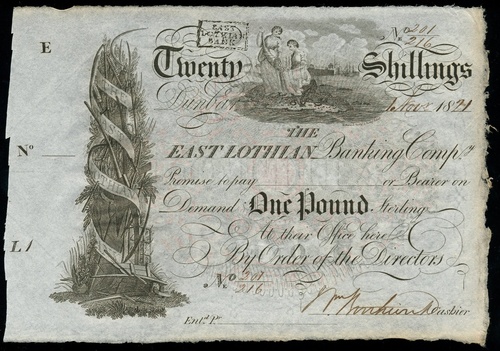 E
EAST
LOTHIAN
BANK
No 201/216
Twenty Shillings
Dunbar 1821
THE
No
EAST LOTHIAN Banking Compy
Promise to pay or Bearer on
Demand One Pound Sterling
At their Office here
L 1
By Order of the Directors
No 201/216
Cashier
Entd. Pr.